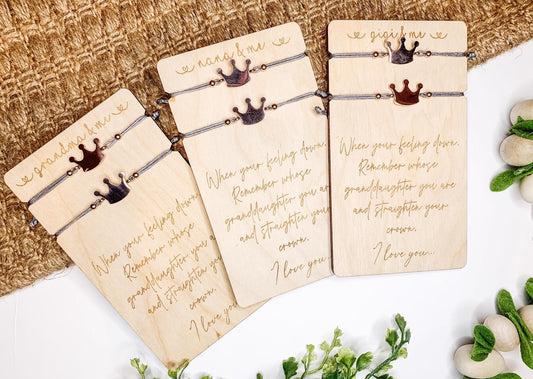 grandma & me
When your feeling down,
Remember whose
granddaughter you are
and straighten your
crown.
I love you...
nana & me
When your feeling down,
Remember whose
granddaughter you are
and straighten your
crown.
I love you...
gigi & me
When your feeling down,
Remember whose
granddaughter you are
and straighten your
crown.
I love you...